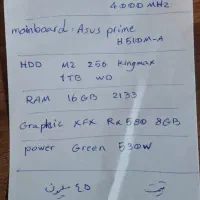 4.000 MHz
motherboard: Asus prime
H510M-A
HDD M2 256 Kingmax
1TB WD
RAM 16GB 2133
Graphic XFX Rx 580 8GB
power Green 530W
قیمت ۴۵ میلیون